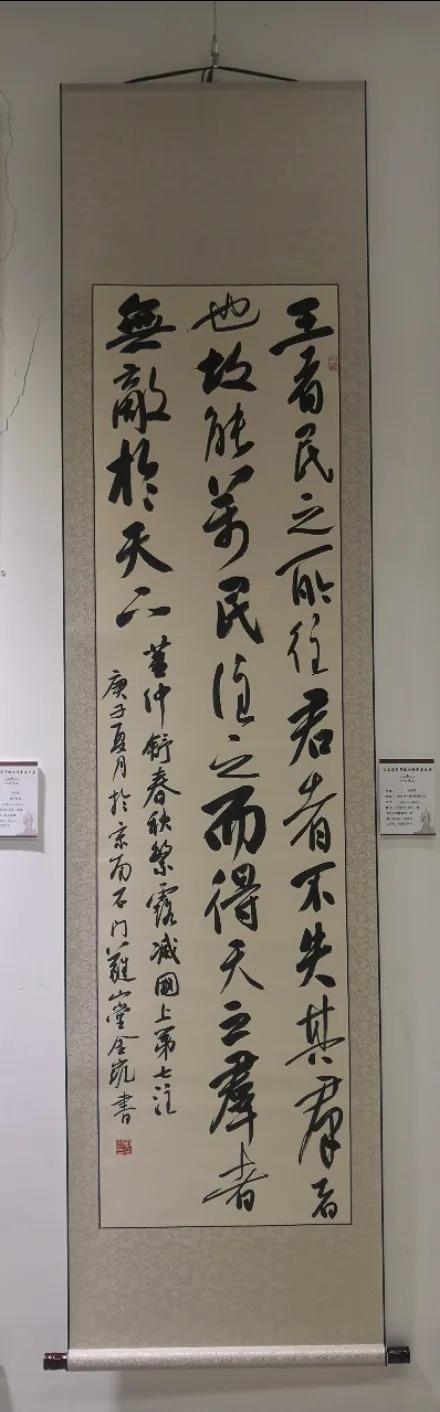 王者民之所往君者不失其群者
也故能萬民往之而得天之羣者
無敵於天下
董仲舒春秋繁露滅國上第七注
庚子夏月於京南石门山堂書